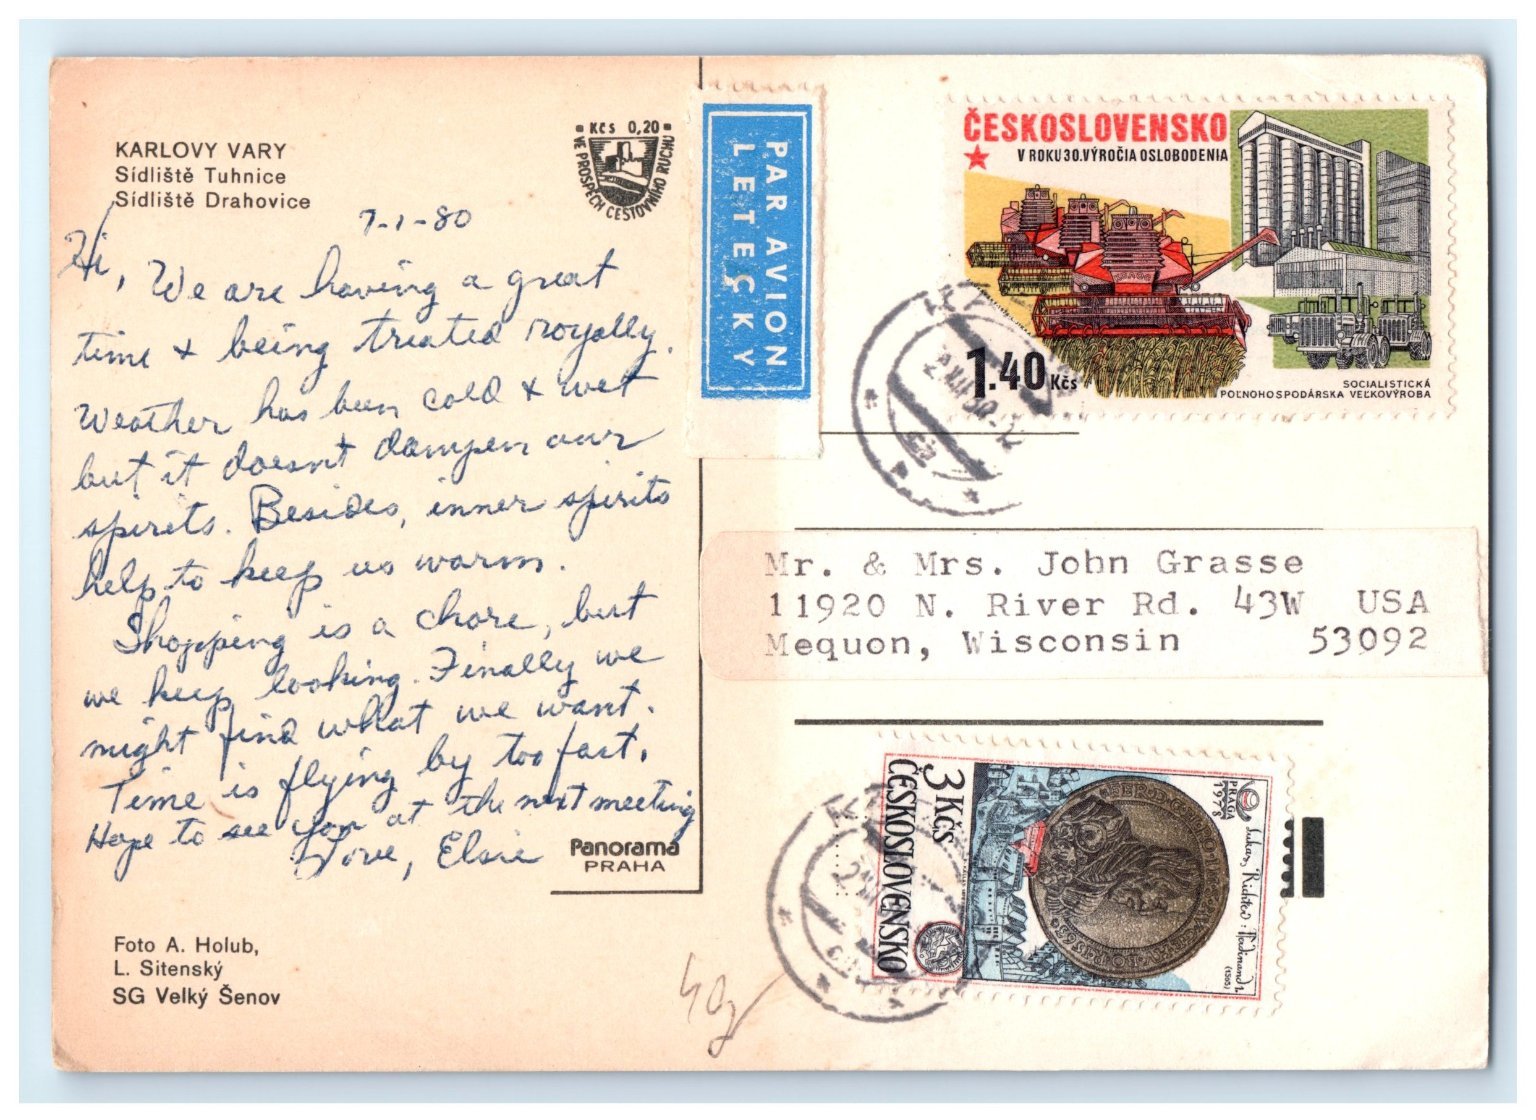 KARLOVY VARY
Sídliště Tuhnice
Sídliště Drahovice
Kčs 0,20
VE PROSPĚCH CESTOVNÍHO RUCHU
7-1-80
Hi, We are having a great
time + being treated royally.
Weather has been cold + wet
but it doesn't dampen our
spirits. Besides, inner spirits
help to keep us warm.
Shopping is a chore, but
we keep looking. Finally we
might find what we want.
Time is flying by too fast.
Hope to see you at the next meeting
Love, Elsie
Panorama
PRAHA
Foto A. Holub,
L. Sitenský
SG Velký Šenov
PAR AVION
LETECKY
ČESKOSLOVENSKO
V ROKU 30. VÝROČIA OSLOBODENIA
1.40 Kčs
SOCIALISTICKÁ
POĽNOHOSPODÁRSKA VEĽKOVÝROBA
Mr. & Mrs. John Grasse
11920 N. River Rd. 43W USA
Mequon, Wisconsin 53092
3 Kčs
ČESKOSLOVENSKO
PRAGA
1978
Lukas Richter: Ferdinand I.
(1563)